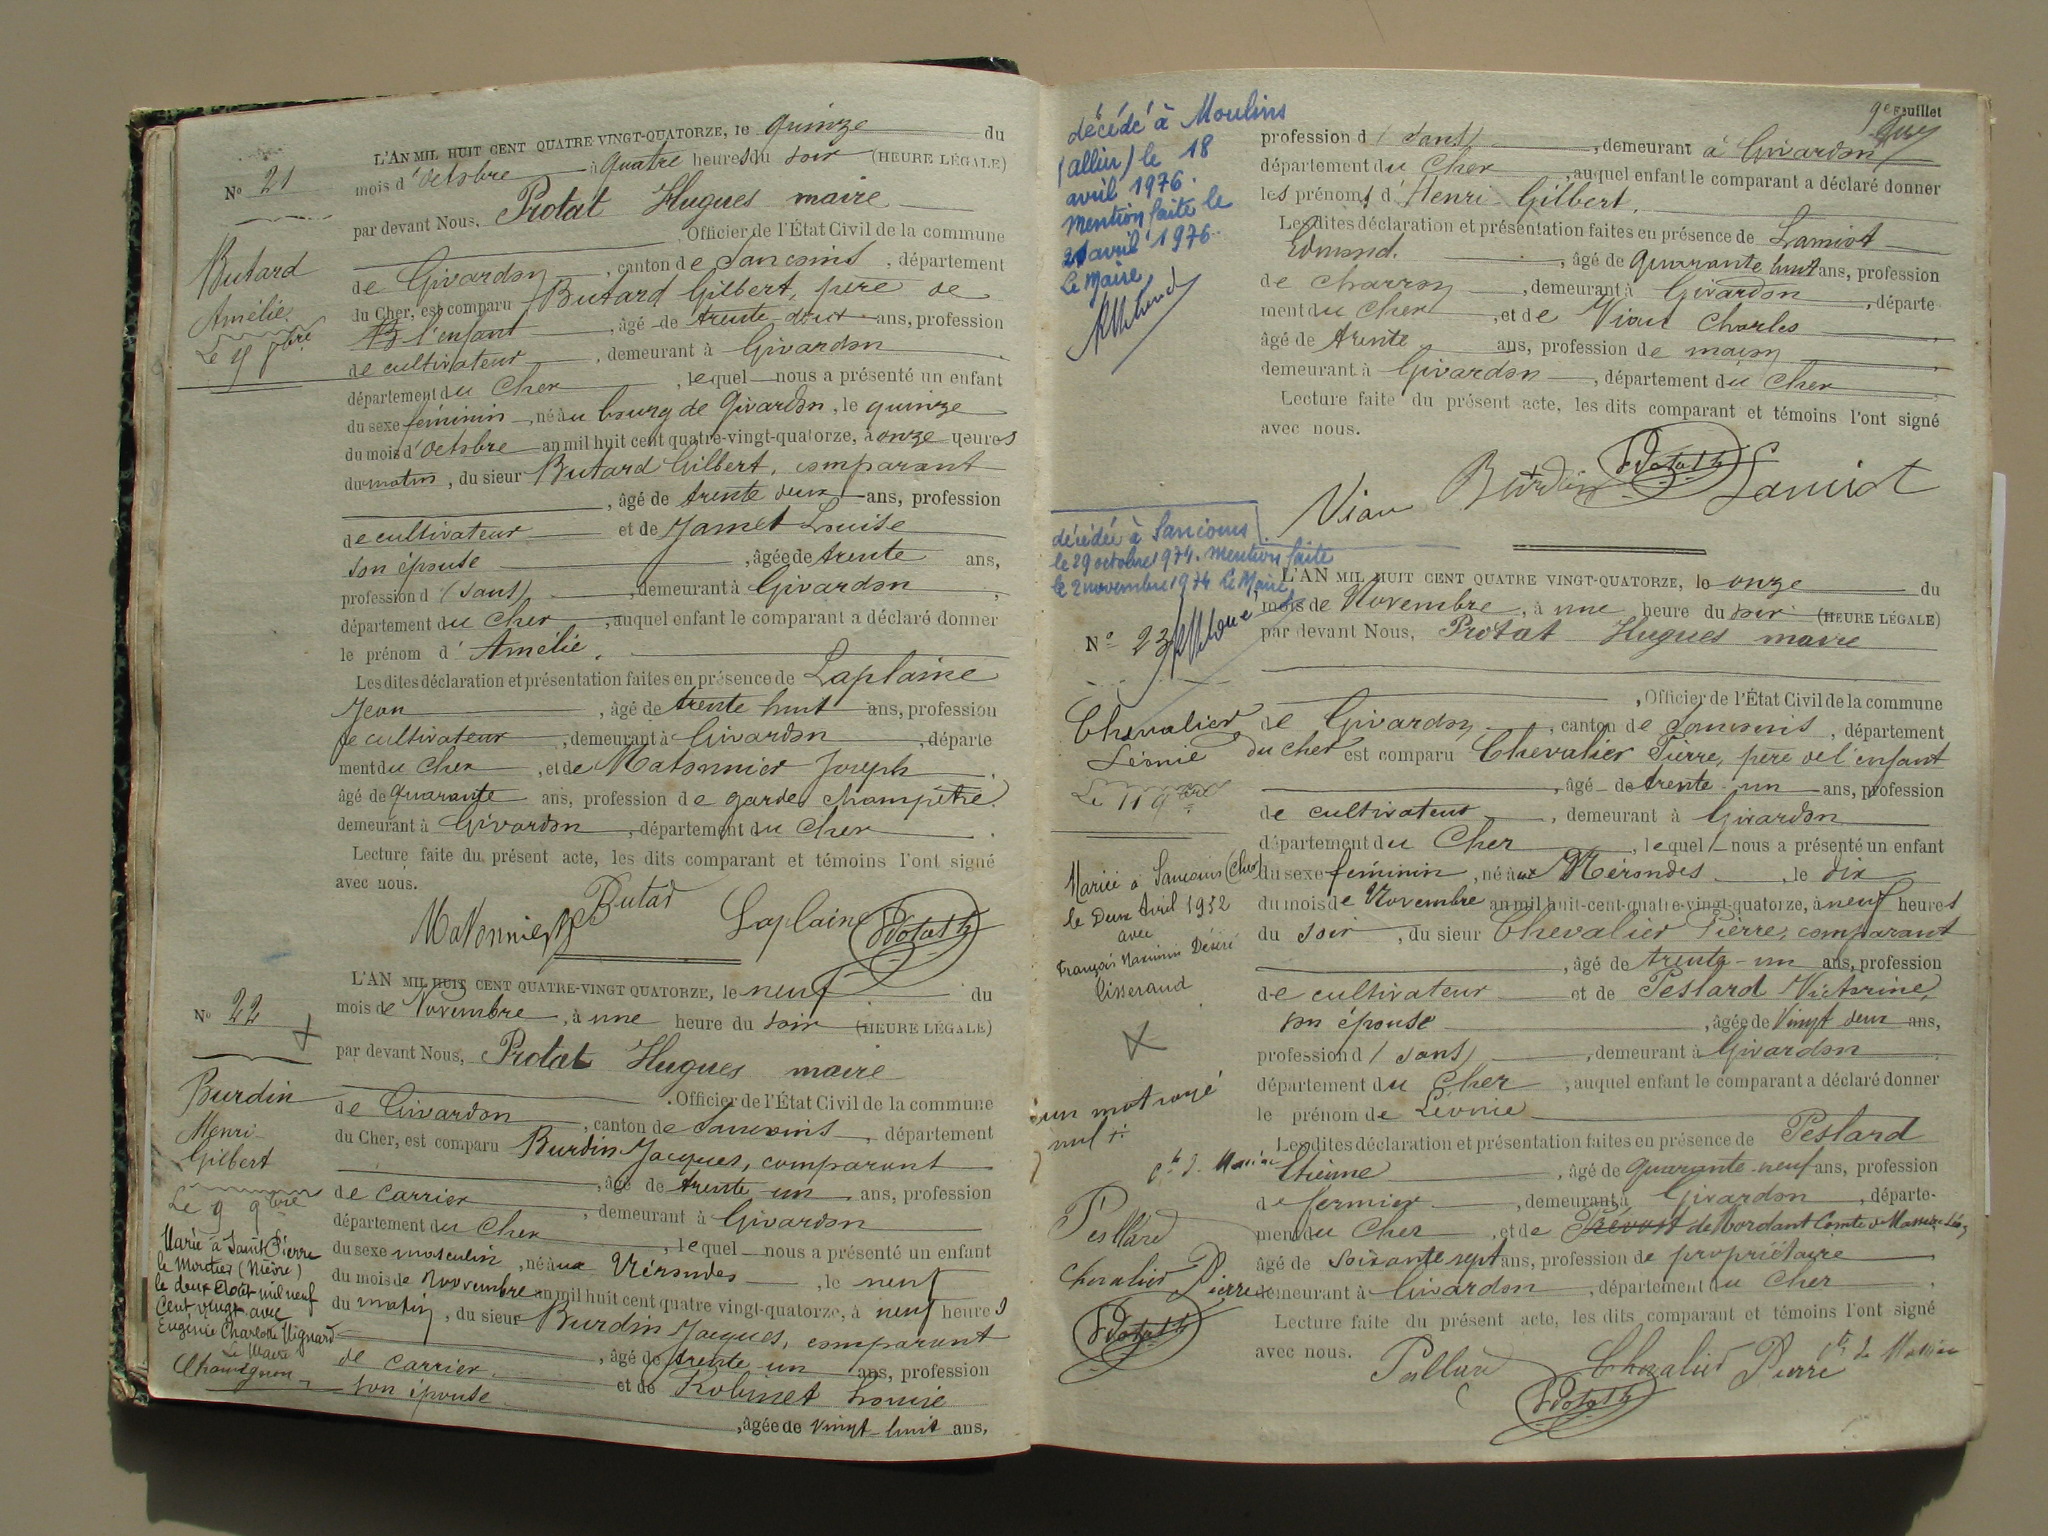 N° 21
Butard
Amélie
Le 15 8bre
L'AN MIL HUIT CENT QUATRE-VINGT-QUATORZE, le quinze du
mois d'Octobre à quatre heures du soir (HEURE LÉGALE)
par devant Nous, Protat Hugues maire
Officier de l'État Civil de la commune
de Givardon, canton de Sancoins, département
du Cher, est comparu Butard Gilbert, père de
l'enfant, âgé de trente-deux ans, profession
de cultivateur, demeurant à Givardon
département du Cher, lequel nous a présenté un enfant
du sexe féminin, né au bourg de Givardon, le quinze
du mois d'Octobre an mil huit cent quatre-vingt-quatorze, à onze heures
du matin, du sieur Butard Gilbert, comparant
, âgé de trente deux ans, profession
de cultivateur et de Jamet Louise
son épouse, âgée de trente ans,
profession d (sans), demeurant à Givardon,
département du Cher, auquel enfant le comparant a déclaré donner
le prénom d'Amélie.
Les dites déclaration et présentation faites en présence de Laplaine
Jean, âgé de trente huit ans, profession
de cultivateur, demeurant à Givardon, départe
ment du Cher, et de Matonnier Joseph
âgé de quarante ans, profession de garde champêtre
demeurant à Givardon, département du Cher.
Lecture faite du présent acte, les dits comparant et témoins l'ont signé
avec nous.
Matonnier Butard Laplaine Protat h
N° 22
Burdin
Henri
Gilbert
Le 9 9bre
Marié à Saint Pierre
le Moutier (Nièvre)
le deux Août mil neuf
cent vingt avec
Eugénie Charlotte Vignard
Le Maire
L'AN MIL HUIT CENT QUATRE-VINGT QUATORZE, le neuf du
mois de Novembre, à une heure du soir (HEURE LÉGALE)
par devant Nous, Protat Hugues maire
Officier de l'État Civil de la commune
de Givardon, canton de Sancoins, département
du Cher, est comparu Burdin Jacques, comparant
, âgé de trente un ans, profession
de carrier, demeurant à Givardon
département du Cher, lequel nous a présenté un enfant
du sexe masculin, né aux Vérondes, le neuf
du mois de Novembre an mil huit cent quatre vingt-quatorze, à neuf heures
du matin, du sieur Burdin Jacques, comparant
, âgé de trente un ans, profession
de carrier et de Robinet Louise
son épouse
, âgée de vingt-huit ans,
9e Feuillet
décédé à Moulins
(allier) le 18
avril 1976.
Mention faite le
21 avril 1976.
Le Maire,
profession d (sans), demeurant à Givardon
département du Cher, auquel enfant le comparant a déclaré donner
les prénoms d'Henri Gilbert.
Les dites déclaration et présentation faites en présence de Lamiot
Edmond, âgé de quarante huit ans, profession
de charron, demeurant à Givardon, départe-
ment du Cher, et de Viau Charles
âgé de trente ans, profession de maçon
demeurant à Givardon, département du Cher
Lecture faite du présent acte, les dits comparant et témoins l'ont signé
avec nous.
Viau Burdin Protat h Lamiot
décédée à Sancoins
le 29 octobre 1974. mention faite
le 2 novembre 1974 Le Maire,
N° 23
Chevalier
Léonie
Le 11 9bre
Mariée à Sancoins (Cher)
le deux Avril 1932
avec
François Maximin Désiré
Lisserand
un mot rayé
nul
Pestlard
Chevalier Pierre
Protat h
L'AN MIL HUIT CENT QUATRE VINGT-QUATORZE, le onze du
mois de Novembre, à une heure du soir (HEURE LÉGALE)
par devant Nous, Protat Hugues maire
, Officier de l'État Civil de la commune
de Givardon, canton de Sancoins, département
du Cher est comparu Chevalier Pierre, père de l'enfant
, âgé de trente-un ans, profession
de cultivateur, demeurant à Givardon
département du Cher, lequel nous a présenté un enfant
du sexe féminin, né aux Mérondes, le dix
du mois de Novembre an mil huit-cent-quatre-vingt-quatorze, à neuf heures
du soir, du sieur Chevalier Pierre, comparant
, âgé de trente-un ans, profession
de cultivateur et de Pestard Victorine,
son épouse, âgée de Vingt deux ans,
profession d (sans), demeurant à Givardon
département du Cher, auquel enfant le comparant a déclaré donner
le prénom de Léonie
Les dites déclaration et présentation faites en présence de Pestard
Etienne, âgé de quarante-neuf ans, profession
de fermier, demeurant à Givardon, départe-
ment du Cher, et de Prévost de Mordant Comte de
âgé de soixante sept ans, profession de propriétaire
demeurant à Givardon, département du Cher.
Lecture faite du présent acte, les dits comparant et témoins l'ont signé
avec nous.
Chevalier Pierre
Protat h